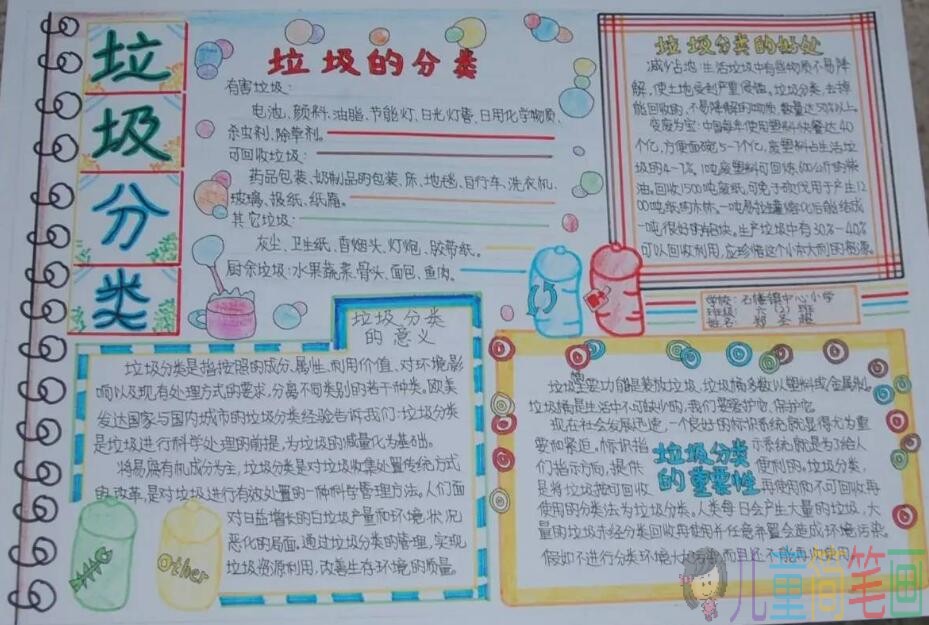 垃
圾
分
类
垃圾的分类
有害垃圾:
电池、颜料、油脂、节能灯、日光灯管、日用化学物质、
杀虫剂、除草剂。
可回收垃圾:
药品包装、奶制品的包装、床、地毯、自行车、洗衣机、
玻璃、报纸、纸箱。
其它垃圾:
灰尘、卫生纸、香烟头、灯炮、胶带纸。
厨余垃圾:水果蔬菜、骨头、面包、鱼肉。
垃圾分类的好处
减少占地:生活垃圾中有些物质不易降
解,使土地受到严重侵蚀,垃圾分类,去掉
能回收的、不易降解的物质,数量达50%以上。
变废为宝:中国每年使用塑料快餐达40
个亿,方便面碗5-7个亿,废塑料占生活垃
圾的4-7%。1吨废塑料可回炼600公斤的柴
油。回收1500吨废纸,可免于砍伐用于产生12
00吨纸的木林。一吨易拉罐熔化后能结成
一吨很好的铝块。生产垃圾中有30%-40%
可以回收利用,应珍惜这个小本大利的资源。
学校:石楼镇中心小学
班级:六(3)班
姓名:
垃圾分类
的意义
垃圾分类是指按照的成分、属性、利用价值、对环境影
响以及现有处理方式的要求,分离不同类别的若干种类。欧美
发达国家与国内城市的垃圾分类经验告诉我们:垃圾分类
是垃圾进行科学处理的前提,为垃圾的减量化为基础。
将易腐有机成分为主,垃圾分类是对垃圾收集处置传统方式
的改革,是对垃圾进行有效处置的一种科学管理方法。人们面
对日益增长的白垃圾产量和环境状况
恶化的局面。通过垃圾分类的管理,实现
垃圾资源利用,改善生存环境的质量。
Other
垃圾主要功能是装放垃圾,垃圾桶多数以塑料或金属制。
垃圾桶是生活中不可缺少的,我们要爱护它,保护它。
现在社会发展迅速,一个良好的标识系统就显得尤为重
要和紧迫。标识指示系统就是为了给人
们指示方向,提供便利的。垃圾分类,
是将垃圾按可回收再使用和不可回收再
垃圾分类
的重要性
使用的分类法为垃圾分类。人类每日会产生大量的垃圾,大
量的垃圾未经分类回收再使用并任意弃置会造成环境污染。
假如不进行分类环境大
儿童简笔画